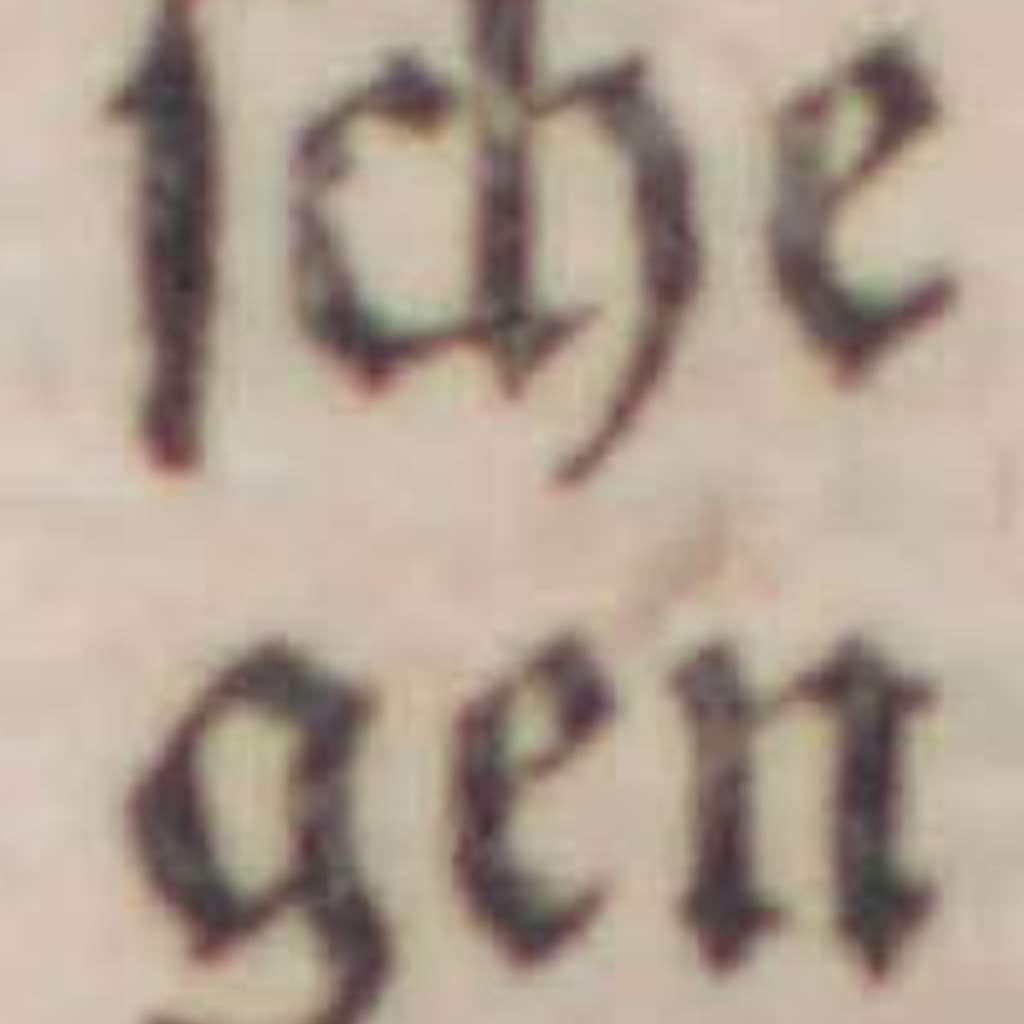 ſche
gen